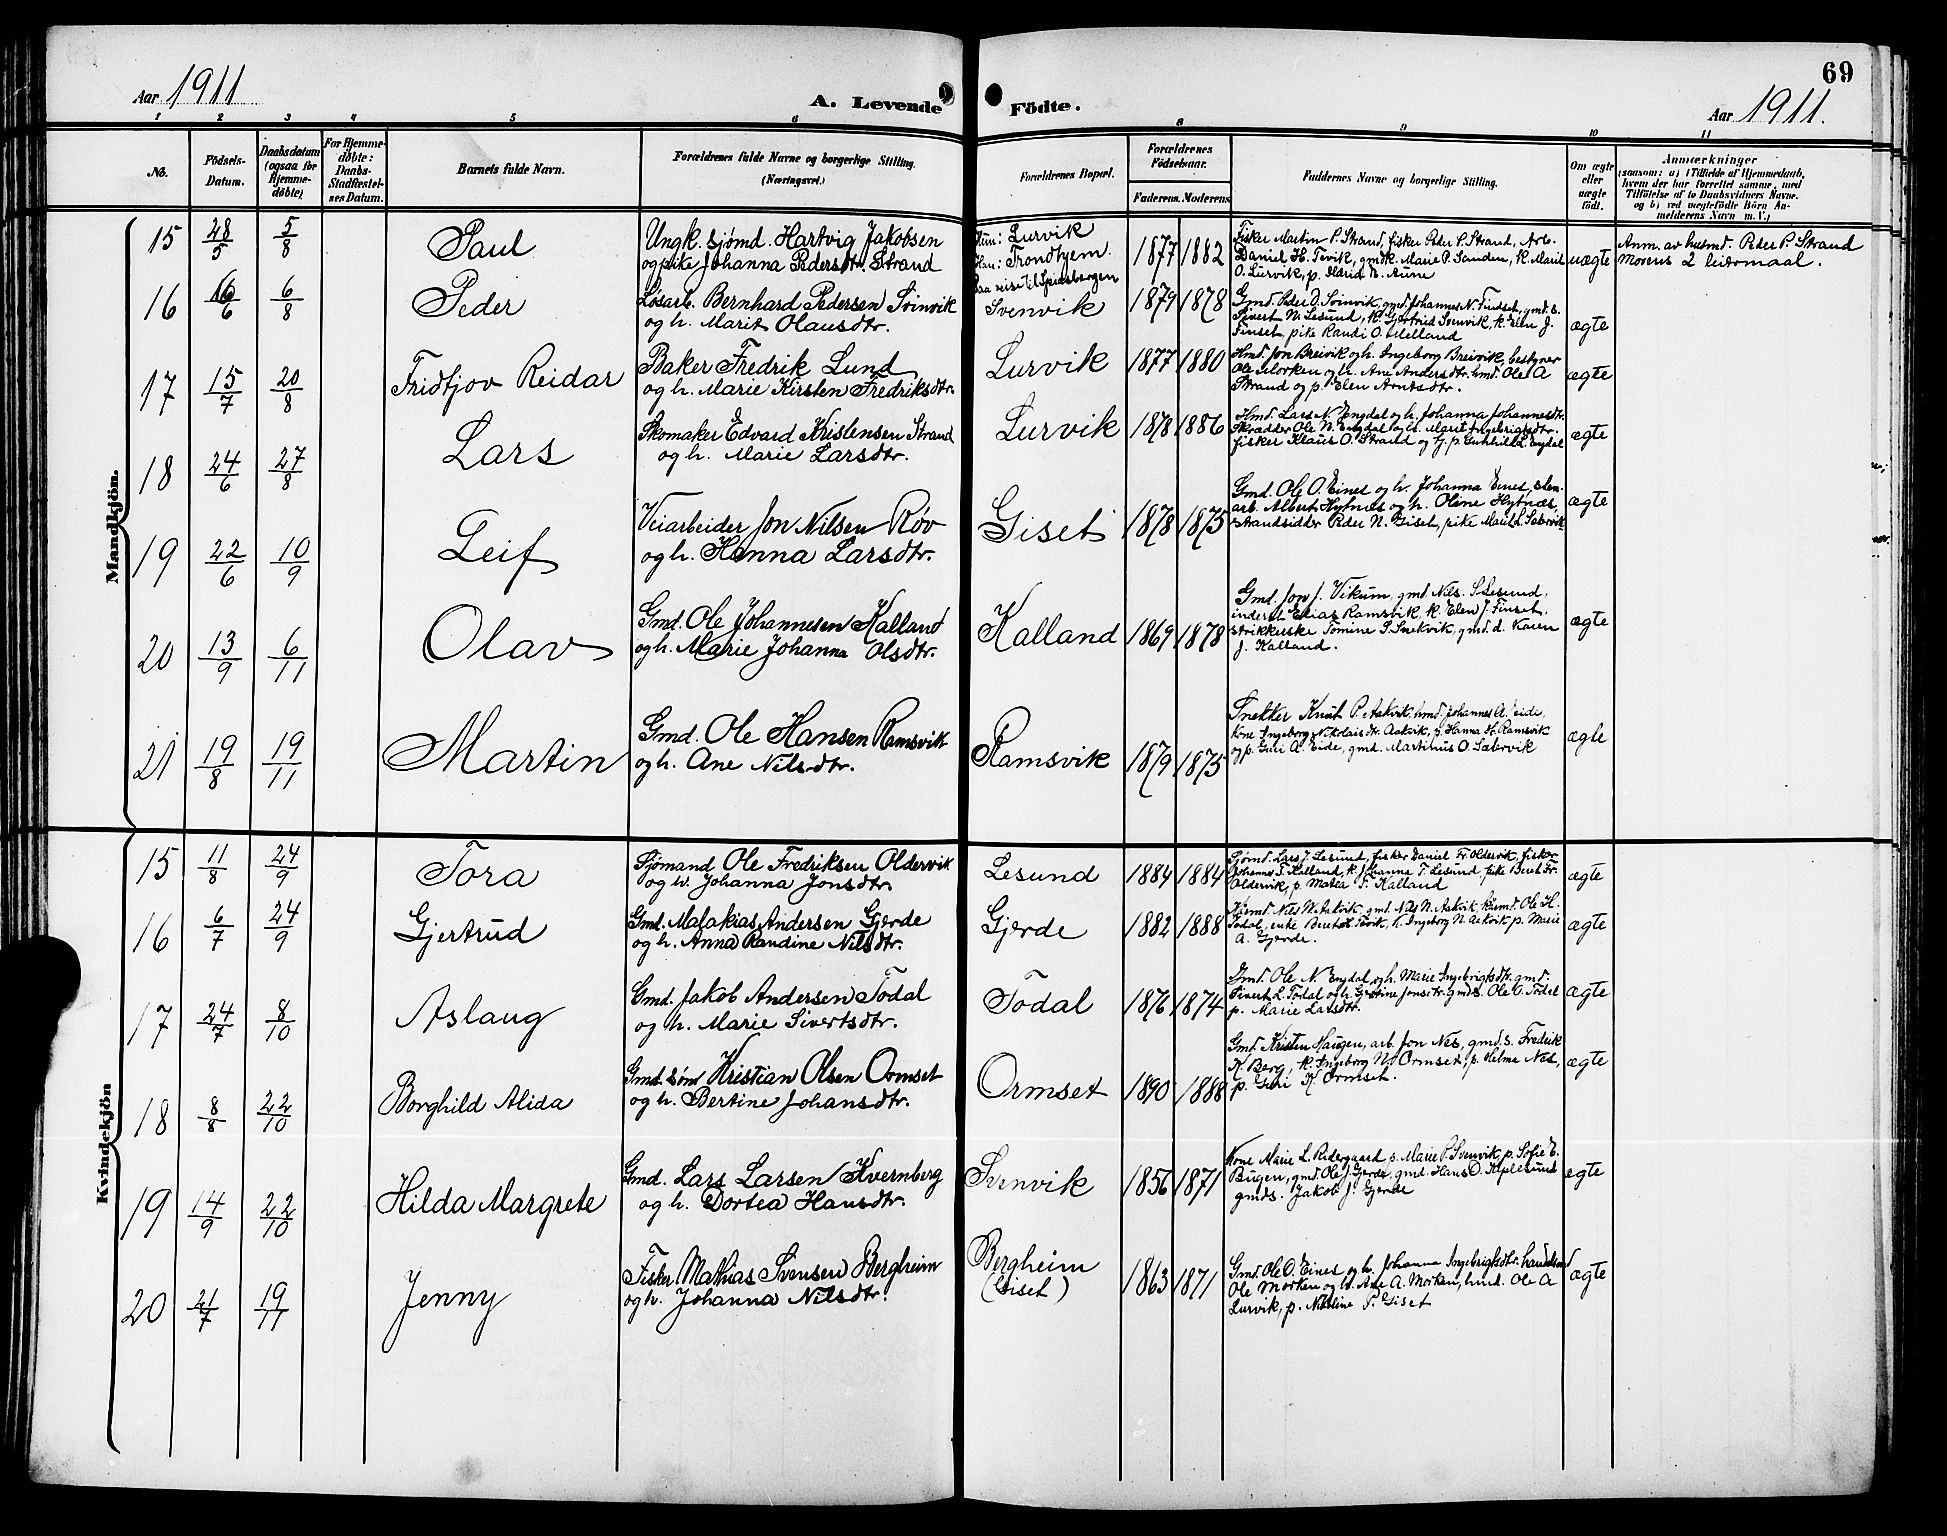 69
Aar 1911
A. Levende Födte.
Aar 1911.
1 2 3 4 5 6 8 9 10 11
No.
Födsels-
Datum.
Daabsdatum
(ogsaa for
Hjemme-
döbte)
For Hjemme-
döbte:
Daabs-
Stadfæstel-
ses Datum.
Barnets fulde Navn.
Forældrenes fulde Navne og borgerlige Stilling.
(Næringsvei.)
Forældrenes Bopæl.
Forældrenes
Födselsaar.
Faderens. Moderens
Faddernes Navne og borgerlige Stilling.
Om ægte
eller
uægte
født.
Anmærkninger
(saasom: a) i Tilfælde af Hjemmedaab,
hvem der har forrettet samme, med
Tilføielse af to Daabsvidners Navne.
og b) ved uægtefødte Börn An-
melderens Navn m. V.)
Mandkjön.
15 28/5 5/8 Paul
Ungk. sjømd. Hartvig Jakobsen
og pike Johanna Pedersdtr. Strand
Hun: Lurvik
Han: Trondhjem.
Paa reise til Spitsbergen
1877 1882
Fisker Martin P. Strand, fisker Peder P. Strand, Arb.
Daniel H. Tevik, gmdk. Marie P. Sanden, k. Marit
O. Lurvik, p. Maria N. Aune
uægte
Anm. av husmd. Peder P. Strand
Morens 2 leiermaal.
16 16/6 6/8 Peder
Løsarb. Bernhard Pedersen Svinvik
og h. Marit Olausdtr.
Svenvik
1879 1878
Gmd. Peder O. Svinvik, gmd. Johannes N. Finset, gmd. s.
Sivert N. Lesund, k. Gjertrud Svinvik, k. Elen J.
Finset, pike Randi O. Melland
ægte
17 15/7 20/8 Fridtjov Reidar
Baker Fredrik Lund
og h. Marie Kirsten Fredriksdtr.
Lurvik
1877 1880
Hmd. Jon Breivik og h. Ingeborg Breivik, bestyrer
Ole Morken og h. Ane Andersdtr. hmd. Ole A
Strand og p. Elen Arntsdtr.
ægte
18 24/6 27/8 Lars
Skomaker Edvard Kristensen Strand
og h. Marie Larsdtr.
Lurvik
1878 1886
Hmd. Lars N. Engdal og h. Johanna Johannesdtr.
Skrædder Ole N. Engdal og h. Marit Ingebrigtsdtr.
fisker Klaus O. Strand og p. Gunhild L. Engdal
ægte
19 22/6 10/9 Leif
Veiarbeider Jon Nilsen Røv
og h. Hanna Larsdtr.
Giset
1878 1875
Gmd. Ole O. Eines og h. Johanna Eines, sten-
arb. Albert Hyfnes og h. Oline Hyfnæs,
strandsidder Peder N. Giset, pike Marit L. Sæbervik
ægte
20 13/9 6/11 Olav
Gmd. Ole Johannesen Kalland
og h. Marie Johanna Olsdtr.
Kalland
1869 1878
Gmd. Jon J. Vikum, gmd. Nils S Lesund,
inderst Elias Ramsvik, k. Elen J. Finset,
strikkerske Tomine S. Snekvik, gmd. d. Karen
J. Kalland.
ægte
21 19/8 19/11 Martin
Gmd. Ole Hansen Ramsvik
og h. Ane Nilsdtr.
Ramsvik
1879 1875
Snekker Knut P. Aakvik, hmd. Johannes A. Eide,
kone Ingeborg Nikolaisdtr. Aakvik, p. Hanna H. Ramsvik
og p. Guri A. Eide, gmd. Martinus O. Sæbervik
ægte
Kvindekjön
15 11/8 24/9 Tora
Sjømand Ole Fredriksen Oldervik
og h. Johanna Jonsdtr.
Lesund
1884 1884
Sjømd. Lars J. Lesund, fisker Daniel Fr. Oldervik, fisker
Johannes T. Kalland, k. Johanna T. Lesund, pike Berit Fr.
Oldervik, p. Matea T. Kalland
ægte
16 6/7 24/9 Gjertrud
Gmd. Malakias Andersen Gjerde
og h. Anna Randine Nilsdtr.
Gjerde
1882 1888
Nils N. Aakvik, gmd. Nils N. Aakvik, Ole H.
Todal, enke Tevik, k. Ingeborg N. Aakvik, p. Marie
A. Gjerde.
ægte
17 24/7 8/10 Aslaug
Gmd. Jakob Andersen Todal
og h. Marie Sivertsdtr.
Todal
1876 1874
Gmd. Ole N. Engdal og h. Marie Ingebrigtsdtr. gmd.
Sivert L. Todal og h. Gjertine Jonsdtr. gmds. Ole O. Todal
p. Marie Larsdtr.
ægte
18 8/8 22/10 Borghild Alida
Gmd. søn Kristian Olsen Ormset
og h. Bertine Johansdtr.
Ormset
1890 1888
Gmd. Kristen Haugen, arb. Jon Nes, gmd. s. Fredrik
K. Berg, k. Ingeborg N. Ormset, p. Helma Nes,
p. Guri K. Ormset.
ægte
19 14/9 22/10 Hilda Margrete
Gmd. Lars Larsen Kvernberg
og h. Dortea Hansdtr.
Svinvik
1856 1871
Kone Marie L. Redergaard p. Marie P. Svenvik, p. Sofie E.
Bugen, gmd. Ole J. Gjerde, gmd. Hans O. Keplesund
gmds. Jakob J. Gjerde
ægte
20 21/7 19/11 Jenny
Fisker Mathias Svensen Bergheim
og h. Johanna Nilsdtr.
Bergheim
(Giset)
1863 1871
Gmd. Ole O. Eines og h. Johanna Ingebrigtsdtr. handelsmd
Ole Morken og h. Ane A. Morken, hmd. Ole A
Lurvik, p. Nikoline P. Giset
ægte